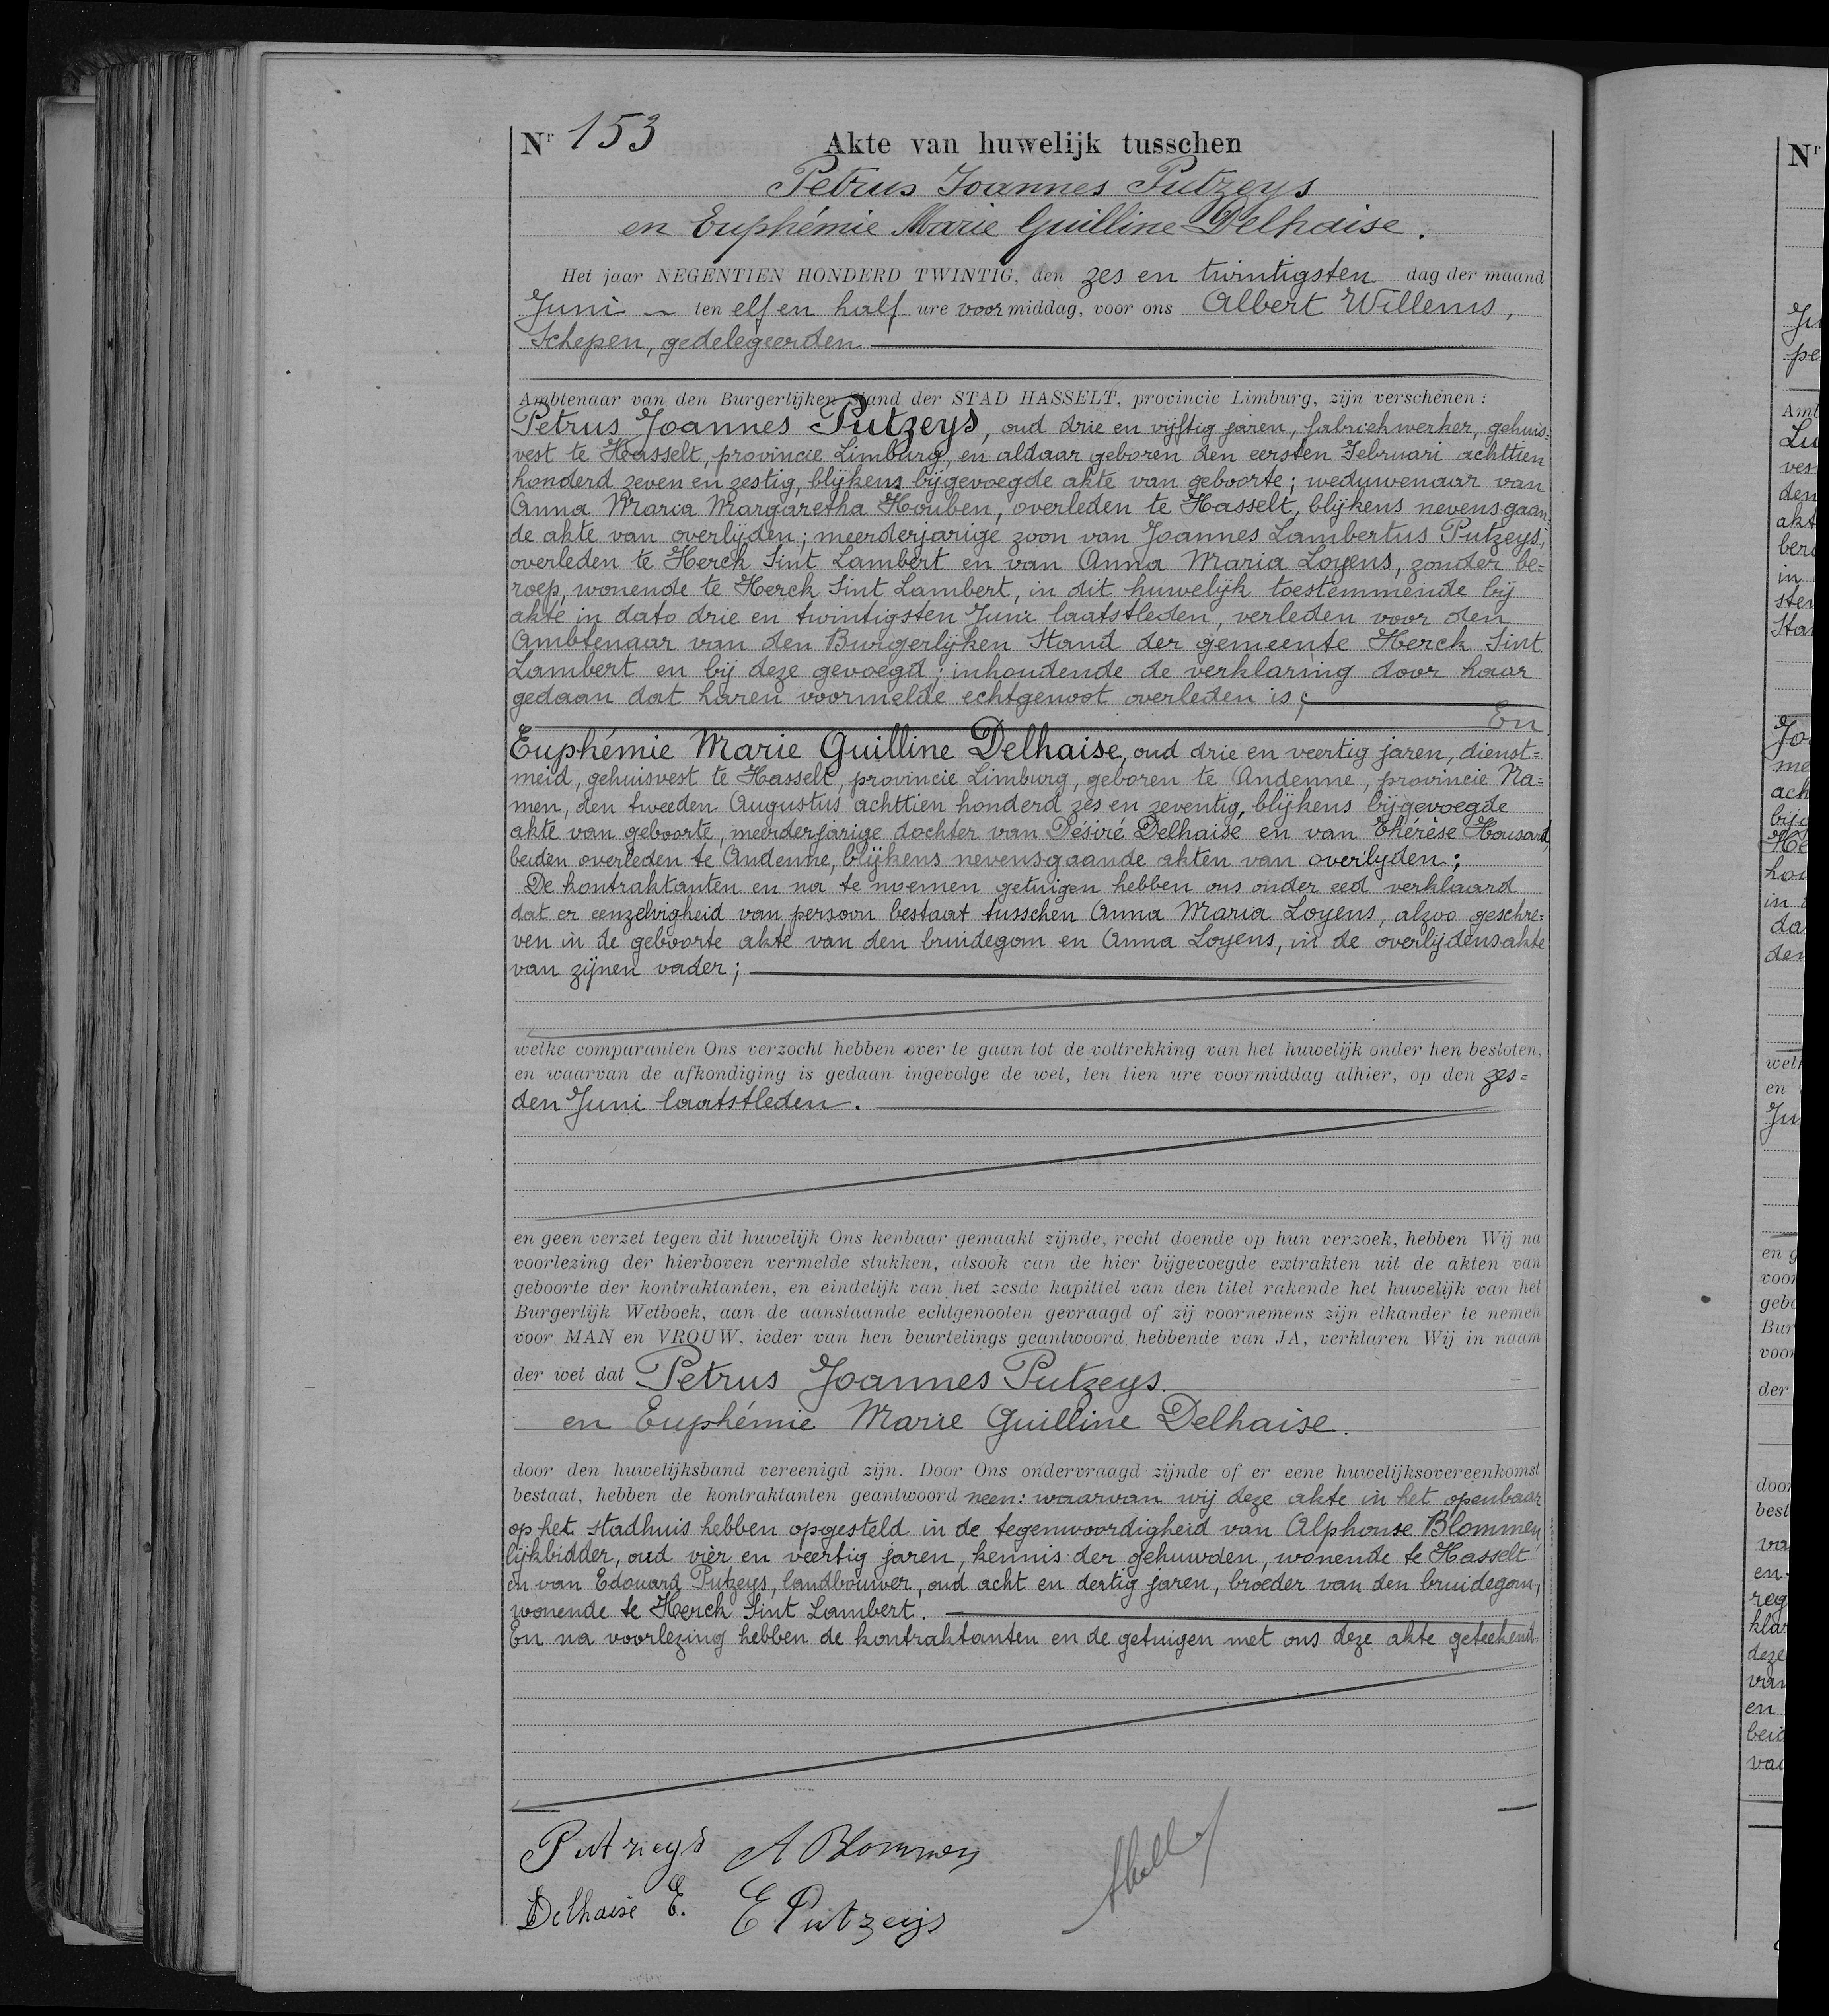 Nr 153 Akte van huwelijk tusschen
Petrus Joannes Putzeys
en Euphémie Marie Guilline Delhaise.
Het jaar NEGENTIEN HONDERD TWINTIG, den zes en twintigsten dag der maand
Juni — ten elf en half ure voormiddag, voor ons Albert Willems,
Schepen, gedelegeerden
Ambtenaar van den Burgerlijken Stand der STAD HASSELT, provincie Limburg, zijn verschenen :
Petrus Joannes Putzeys, oud drie en vijftig jaren, fabriekwerker, gehuis=
vest te Hasselt, provincie Limburg, en aldaar geboren den eersten Februari achttien
honderd zeven en zestig, blijkens bijgevoegde akte van geboorte; weduwenaar van
Anna Maria Margaretha Houben, overleden te Hasselt, blijkens nevensgaan=
de akte van overlijden; meerderjarige zoon van Joannes Lambertus Putzeys,
overleden te Herck Sint Lambert en van Anna Maria Loyens, zonder be=
roep, wonende te Herck Sint Lambert, in dit huwelijk toestemmende bij
akte in dato drie en twintigsten Juni laatstleden, verleden voor den
Ambtenaar van den Burgerlijken Stand der gemeente Herck Sint
Lambert en bij deze gevoegd; inhoudende de verklaring door haar
gedaan dat haren voormelde echtgenoot overleden is;
En
Euphémie Marie Guilline Delhaise, oud drie en veertig jaren, dienst=
meid, gehuisvest te Hasselt, provincie Limburg, geboren te Andenne, provincie Na=
men, den tweeden Augustus achttien honderd zes en zeventig, blijkens bijgevoegde
akte van geboorte, meerderjarige dochter van Désiré Delhaise en van Thérèse Housard
beiden overleden te Andenne, blijkens nevensgaande akten van overlijden;
De kontraktanten en na te noemen getuigen hebben ons onder eed verklaard
dat er eenzelvigheid van persoon bestaat tusschen Anna Maria Loyens, alzoo geschre=
ven in de geboorte akte van den bruidegom en Anna Loyens, in de overlijdensakte
van zijnen vader;
welke comparanten Ons verzocht hebben over te gaan tot de voltrekking van het huwelijk onder hen besloten,
en waarvan de afkondiging is gedaan ingevolge de wet, ten tien ure voormiddag alhier, op den zes=
den Juni laatstleden.
en geen verzet tegen dit huwelijk Ons kenbaar gemaakt zijnde, recht doende op hun verzoek, hebben Wij na
voorlezing der hierboven vermelde stukken, alsook van de hier bijgevoegde extrakten uit de akten van
geboorte der kontraktanten, en eindelijk van het zesde kapittel van den titel rakende het huwelijk van het
Burgerlijk Wetboek, aan de aanstaande echtgenooten gevraagd of zij voornemens zijn elkander te nemen
voor MAN en VROUW, ieder van hen beurtelings geantwoord hebbende van JA, verklaren Wij in naam
der wet dat Petrus Joannes Putzeys.
en Euphémie Marie Guilline Delhaise.
door den huwelijksband vereenigd zijn. Door Ons ondervraagd zijnde of er eene huwelijksovereenkomst
bestaat, hebben de kontraktanten geantwoord neen: waarvan wij deze akte in het openbaar
op het stadhuis hebben opgesteld in de tegenwoordigheid van Alphonse Blommen,
lijkbidder, oud vier en veertig jaren, kennis der gehuwden, wonende te Hasselt
en van Edouard Putzeys, landbouwer, oud acht en dertig jaren, broeder van den bruidegom,
wonende te Herck Sint Lambert.
En na voorlezing hebben de kontraktanten en de getuigen met ons deze akte geteekend.
Putzeys A Blommen
Delhaise E. E Putzeys